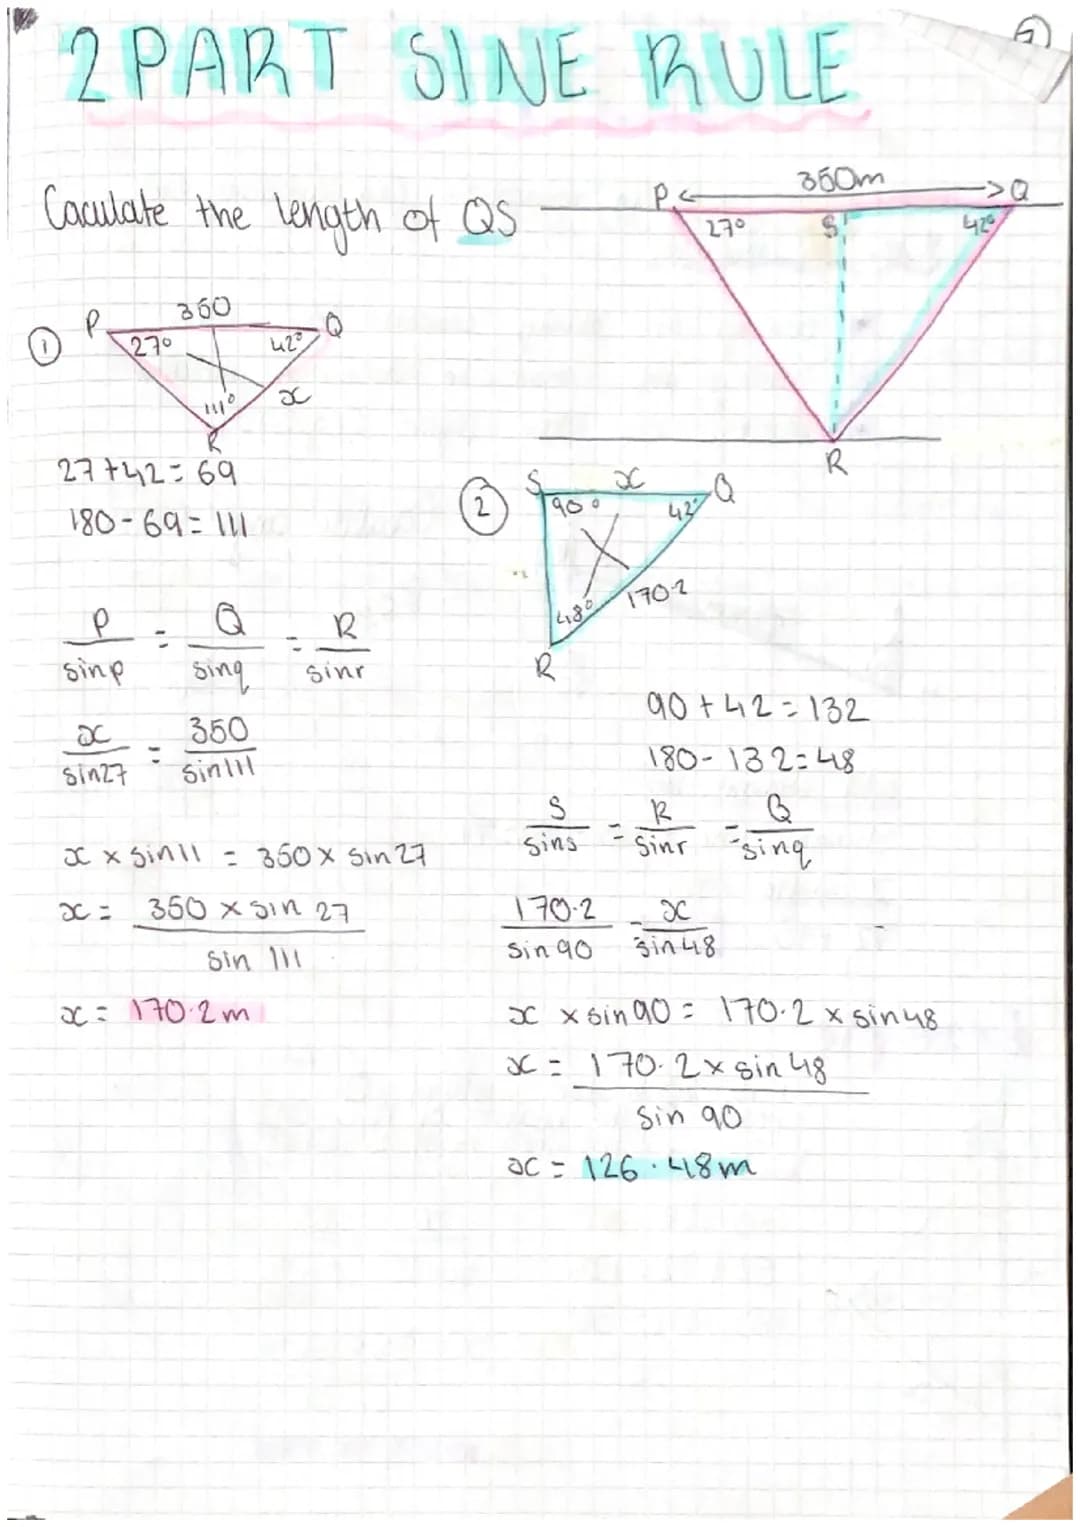 2 PART SINE RULE
Caculate the length of QS
P 350m Q
27° S 42°
R
①
P 350 Q
27° 42°
111° x
R
27+42=69
180-69=111
P/sinp = Q/sinq = R/sinr
x/sin27 = 350/sin111
x × sin11 = 350 × sin27
x = 350 × sin 27 / sin 111
x = 170.2m
②
S x Q
90° 42°
48° 170.2
R
90+42=132
180-132=48
S/sins = R/sinr = Q/sinq
170.2/sin90 = x/sin48
x × sin90 = 170.2 × sin48
x = 170.2 × sin 48 / sin 90
x = 126.48m